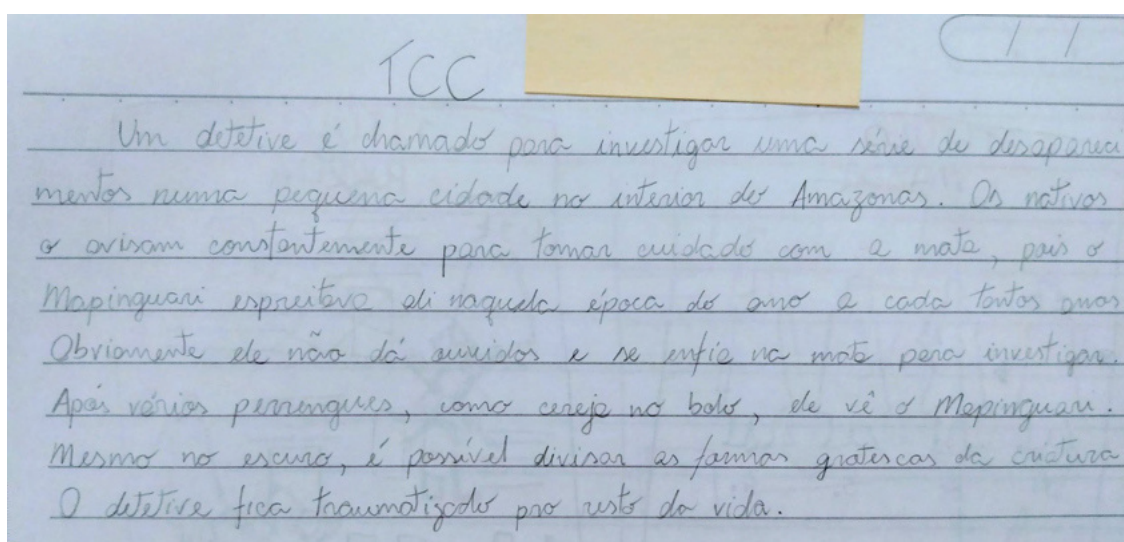 TCC
Um detetive é chamado para investigar uma série de desapareci
mentos numa pequena cidade no interior do Amazonas. Os nativos
o avisam constantemente para tomar cuidado com a mata, pois o
Mapinguari espreitava ali naquela época do ano a cada tantos anos
Obviamente ele não dá ouvidos e se enfia na mata para investigar.
Após vários perrengues, como cereja no bolo, ele vê o Mapinguari.
Mesmo no escuro, é possível divisar as formas grotescas da criatura
O detetive fica traumatizado pro resto da vida.